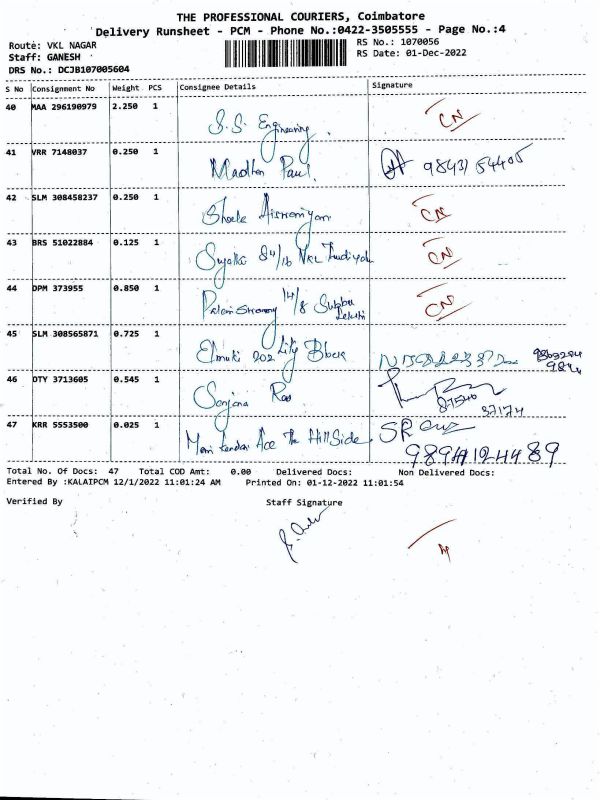 THE PROFESSIONAL COURIERS, Coimbatore
Delivery Runsheet - PCM - Phone No.:0422-3505555 - Page No.:4
Route: VKL NAGAR RS No.: 1070056
Staff: GANESH RS Date: 01-Dec-2022
DRS No.: DCJB107005604
S No Consignment No Weight PCS Consignee Details Signature
40 MAA 296190979 2.250 1 S.S. Engineering. CN
41 VRR 7148037 0.250 1 Madhan Paul. 9843154405
42 SLM 308458237 0.250 1 CN
43 BRS 51022884 0.125 1 84/1b VKL CN
44 DPM 373955 0.850 1 14/8 Subbu CN
45 SLM 308565871 0.725 1 202 Lily Block
46 DTY 3713605 0.545 1 Sanjana Rao 87540
37174
47 KRR 5553500 0.025 1 Ace The HillSide SR
Total No. Of Docs: 47 Total COD Amt: 0.00 Delivered Docs: Non Delivered Docs:
Entered By :KALAIPCM 12/1/2022 11:01:24 AM Printed On: 01-12-2022 11:01:54
Verified By Staff Signature